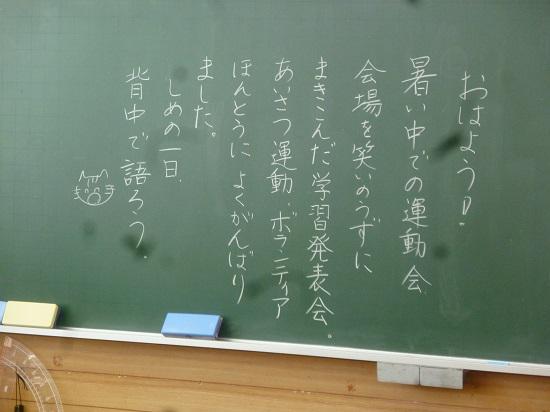 おはよう!
暑い中での運動会
会場を笑いのうずに
まきこんだ学習発表会。
あいさつ運動、ボランティア
ほんとうによくがんばり
ました。
しめの一日、
背中で語ろう。